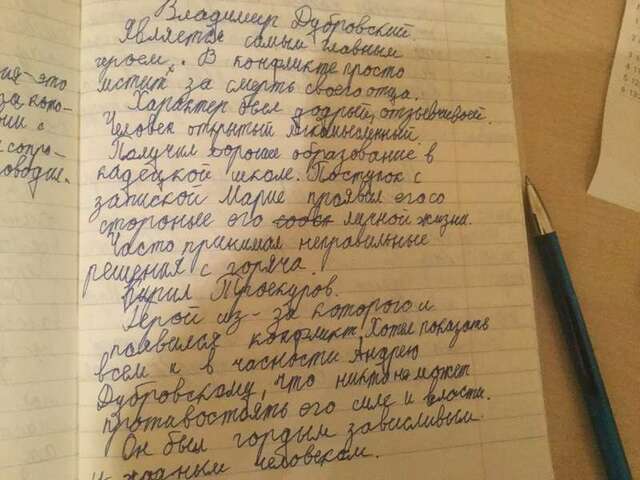 ия это
за кото-
нии с
сопро-
оводие.
Владимир Дубровский
Является самым главным
героем. В конфликте просто
мстит за смерть своего отца.
Характер был добрый, отзывчивый.
Человек открытый
Получил хорошее образование в
кадецкой школе. Поступок с
запиской Марие проявил его со
стороные его личной жизни.
Часто принимал неправильные
решения с горяча.
Кирил Троекуров.
Герои из-за которого и
появился конфликт. Хотел показать
всем и в часности Андрею
Дубровскому, что никто не может
противостоять его силе и власти.
Он был гордым завистливым
и жадным человеком.